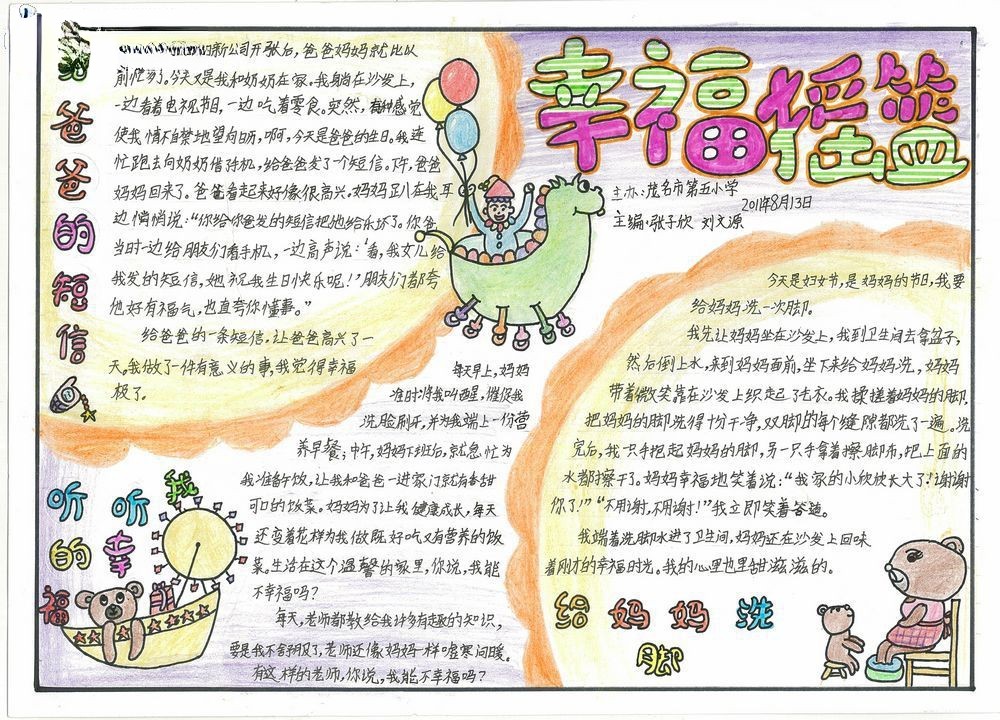 幸福摇篮
主办:茂名市第五小学
2011年8月13日
主编:张子欣 刘文源
爸爸的短信
的新公司开张后,爸爸妈妈就比以
前忙多了。今天又是我和奶奶在家,我躺在沙发上,
一边看着电视节目,一边吃着零食。突然,有种感觉
使我情不自禁地望向日历,啊,今天是爸爸的生日。我连
忙跑去向奶奶借手机,给爸爸发了个短信。下午,爸爸
妈妈回来了。爸爸看起来好像很高兴。妈妈正儿在我耳
边悄悄说:“你给你爸发的短信把他给乐坏了。你爸
当时一边给朋友们看手机,一边高声说:‘看,我女儿给
我发的短信,她祝我生日快乐呢!’朋友们都夸
他好有福气,也直夸你懂事。”
给爸爸的一条短信,让爸爸高兴了一
天。我做了一件有意义的事,我觉得幸福
极了。
听听我
的幸
福
每天早上,妈妈
准时将我叫醒,催促我
洗脸刷牙,并为我端上一份营
养早餐;中午,妈妈下班后,就急忙为
我准备午饭,让我和爸爸一进家门就有香甜
可口的饭菜。妈妈为了让我健康成长,每天
还变着花样为我做既好吃又有营养的饭
菜。生活在这个温馨的家里,你说,我能
不幸福吗?
每天,老师都教给我许多有趣的知识,
要是我不舒服了,老师还像妈妈一样嘘寒问暖。
有这样的老师,你说,我能不幸福吗?
今天是妇女节,是妈妈的节日,我要
给妈妈洗一次脚。
我先让妈妈坐在沙发上,我到卫生间去拿盆子,
然后倒上水,来到妈妈面前,坐下来给妈妈洗,妈妈
带着微笑靠在沙发上织起了毛衣。我揉搓着妈妈的脚,
把妈妈的脚洗得十分干净,双脚的每个缝隙都洗了一遍。洗
完后,我一只手抱起妈妈的脚,另一只手拿着擦脚布,把上面的
水都擦干了。妈妈幸福地笑着说:“我家的小秋秋长大了!谢谢
你了!”“不用谢,不用谢!”我立即笑着答道。
我端着洗脚水进了卫生间,妈妈还在沙发上回味
着刚才的幸福时光。我的心里也里甜滋滋的。
给妈妈洗
脚